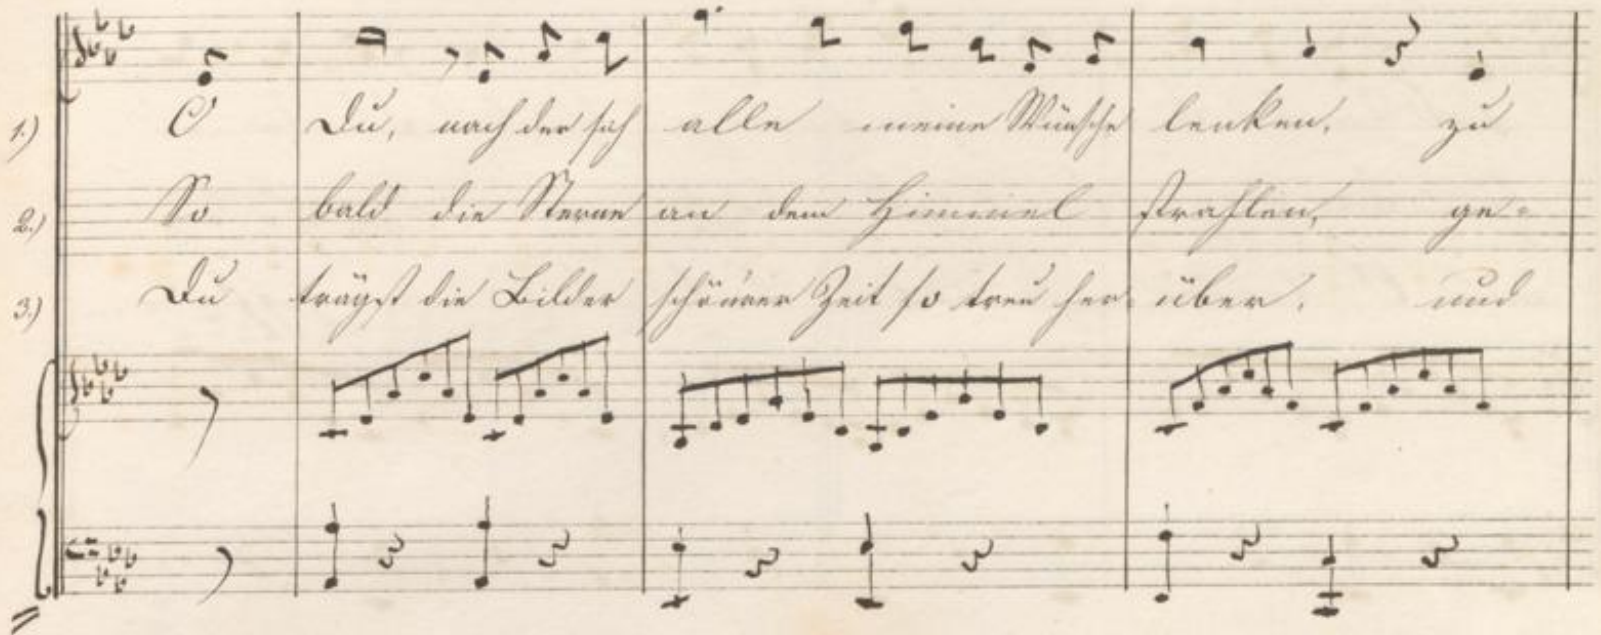 1.) O Du, nach der sich alle meine Wünsche lenken, zu
2.) So bald die Sterne an dem Himmel strahlen, ge-
3.) Du trägst die Bilder schönrer Zeit so treu her- über, und